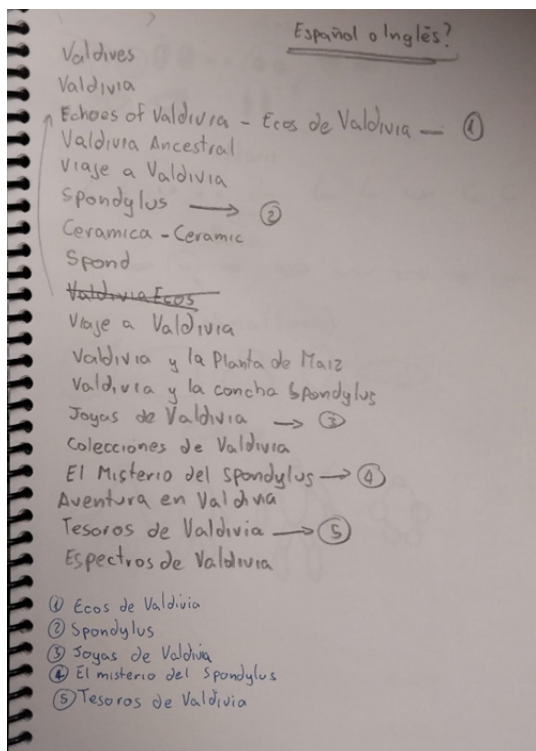 Español o Inglés?
Valdives
Valdivia
Echoes of Valdivia - Ecos de Valdivia — ①
Valdivia Ancestral
Viaje a Valdivia
Spondylus → ②
Ceramica - Ceramic
Spond
Valdivia Ecos
Viaje a Valdivia
Valdivia y la Planta de Maiz
Valdivia y la concha Spondylus
Joyas de Valdivia → ③
Colecciones de Valdivia
El Misterio del Spondylus → ④
Aventura en Valdivia
Tesoros de Valdivia → ⑤
Espectros de Valdivia
① Ecos de Valdivia
② Spondylus
③ Joyas de Valdivia
④ El misterio del Spondylus
⑤ Tesoros de Valdivia